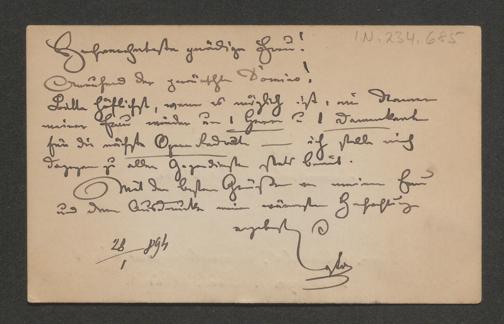 I.N. 234.685
Hochverehrteste gnädige Frau!
der Domino!
Bitte höflichst, wenn es möglich ist, im Namen
meiner Frau wieder um 1 Herrn u 1 Damenkarte
für die nächste Opern Redoute — ich stelle mich
dagegen zu allen Gegendiensten stets bereit.
Mit den besten Grüßen an meine Frau
und dem Ausdrucke meiner wärmsten Hochachtung
ergebenst
28/1 894